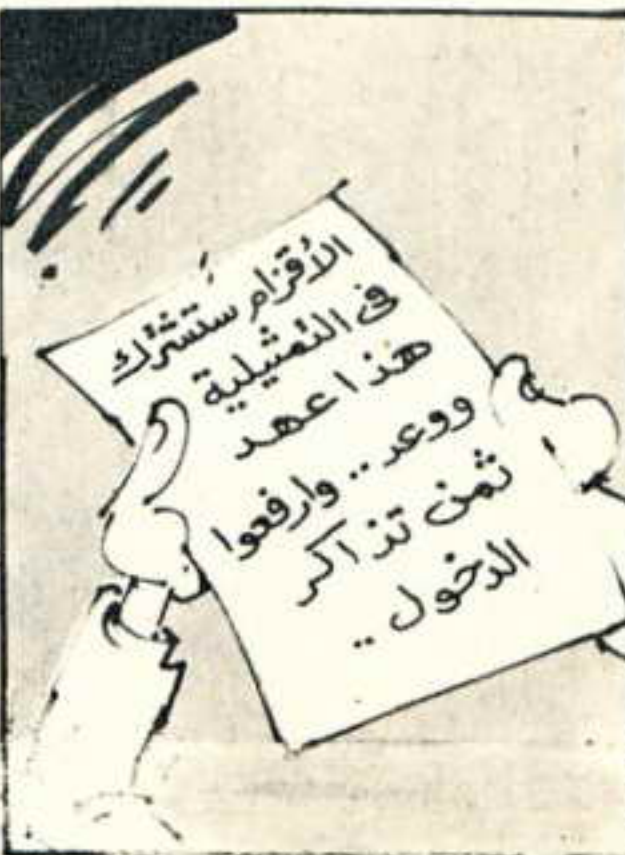 الأقزام ستشترك
فى التمثيلية
هذا عهد
ووعد .. وارفعوا
ثمن تذاكر
الدخول ..